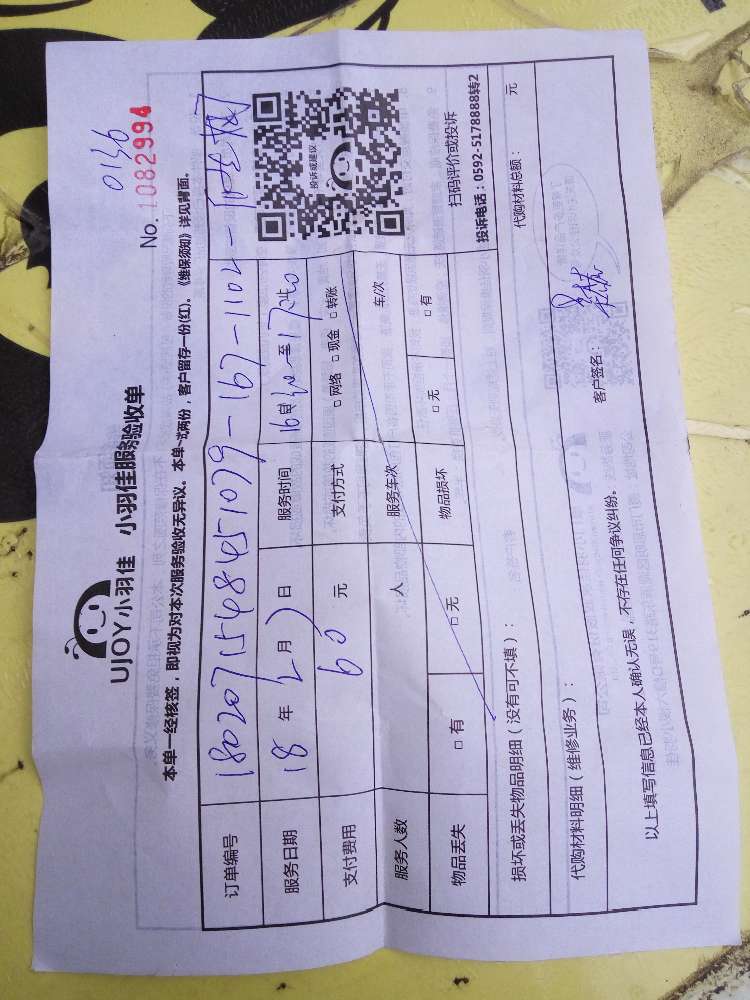 0136
No. 1082994
UJOY小羽佳 小羽佳服务验收单
本单一经核签，即视为对本次服务验收无异议。本单一式两份，客户留存一份(红)。《维保须知》详见背面。
订单编号
服务日期 18 年 2 月 7 日 服务时间 至
支付费用 60 元 支付方式 □ 网络 □ 现金 □ 转账
投诉或建议
服务人数 人 服务车次 车/次
物品丢失 □ 有 □ 无 物品损坏 □ 无 □ 有
扫码评价或投诉
投诉电话：0592-5178888转2
损坏或丢失物品明细（没有可不填）：
代购材料明细（维修业务）： 代购材料总额： 元
以上填写信息已经本人确认无误，不存在任何争议纠纷。 客户签名：